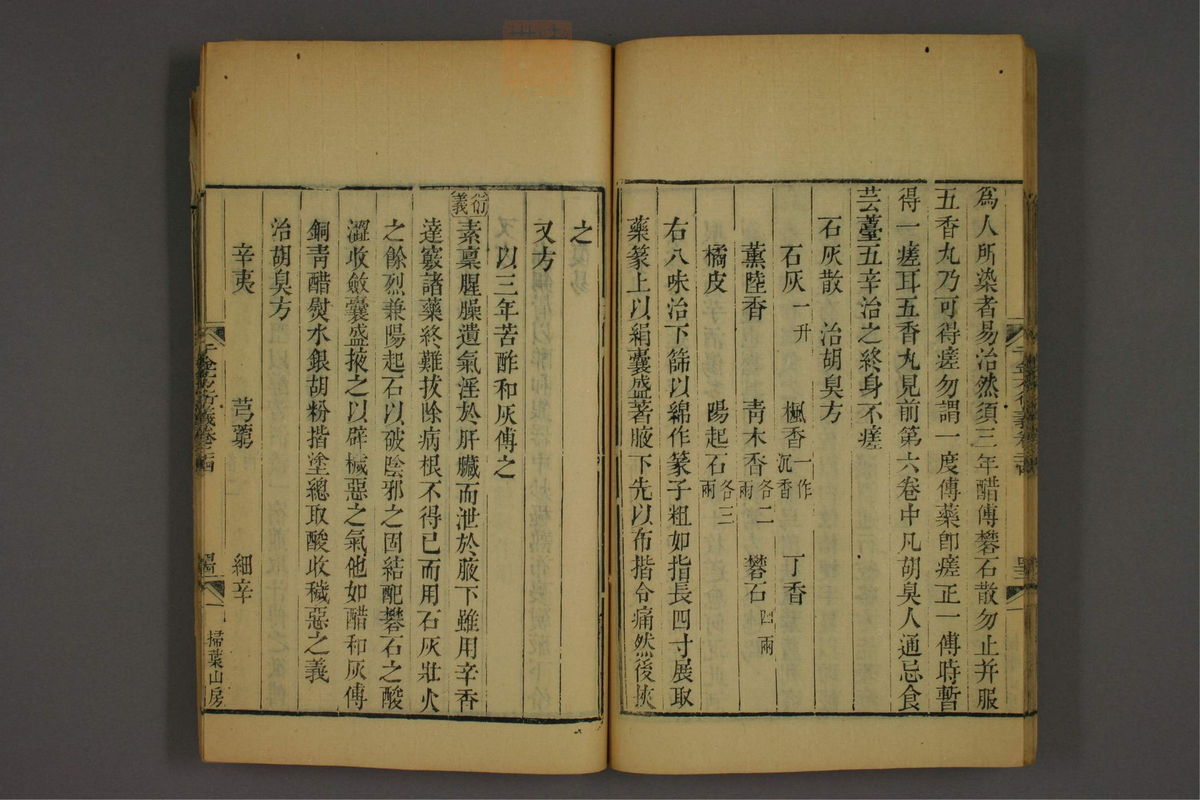 為人所染者易治然須三年醋傅礬石散勿止并服
五香丸乃可得瘥勿謂一度傅藥卽瘥正一傅時暫
得一瘥耳五香丸見前第六卷中凡胡臭人通忌食
芸薹五辛治之終身不瘥
石灰散 治胡臭方
石灰一升 楓香一作沉香 丁香
薰陸香 靑木香各二兩 礬石四兩
橘皮 陽起石各三兩
右八味治下篩以綿作篆子粗如指長四寸展取
藥篆上以絹囊盛著腋下先以布揩令痛然後挾
之
又方
以三年苦酢和灰傅之
衍義
素稟腥臊遺氣淫於肝臟而泄於腋下雖用辛香
達竅諸藥終難拔除病根不得已而用石灰壯火
之餘烈兼陽起石以破陰邪之固結配礬石之酸
澀收斂囊盛掖之以辟穢惡之氣他如醋和灰傅
銅靑醋熨水銀胡粉揩塗總取酸收穢惡之義
治胡臭方
辛夷 芎藭 細辛
千金方衍義卷二十四
掃葉山房